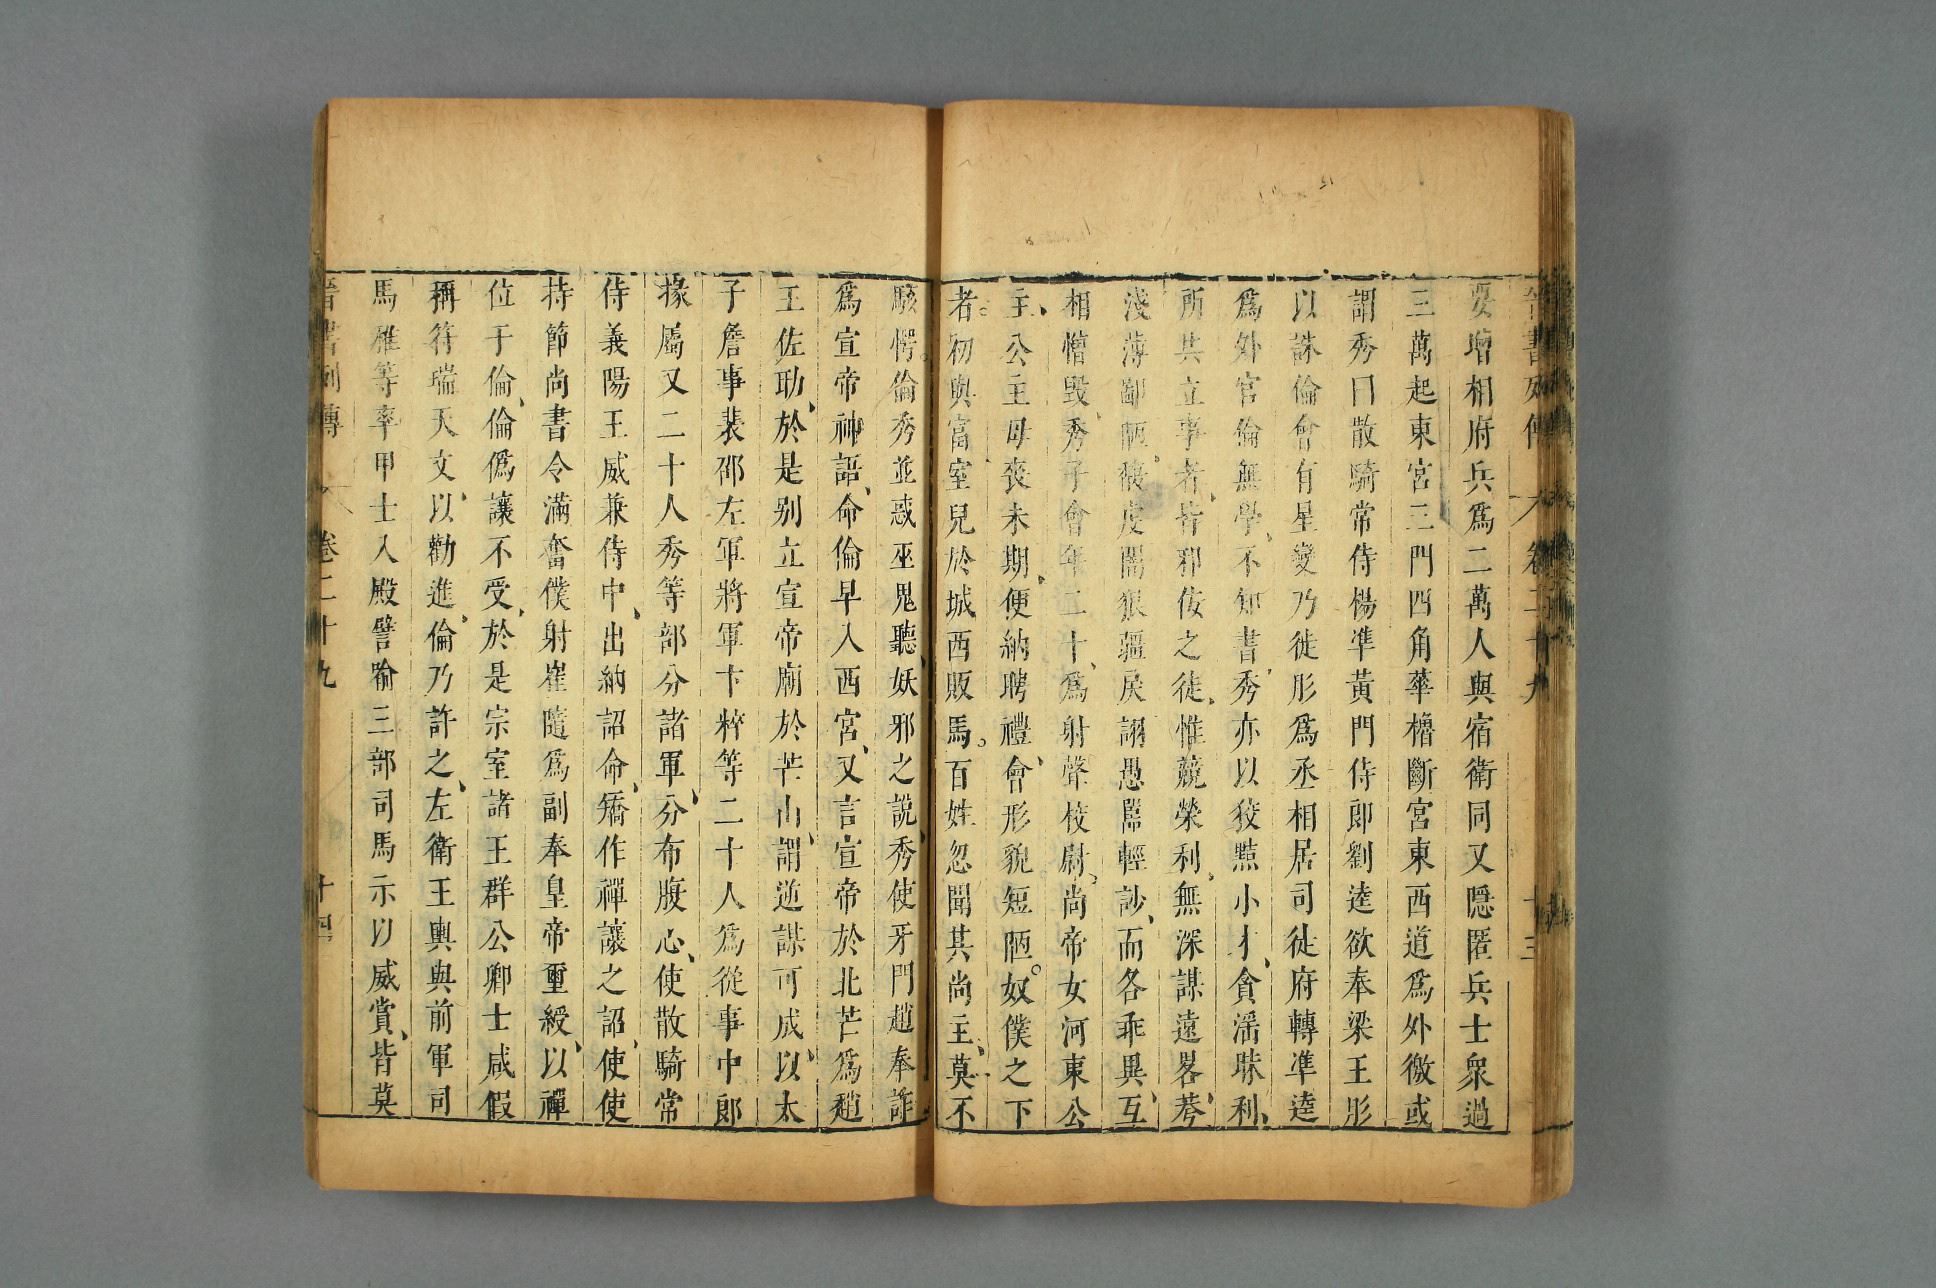 晉書列傳 卷二十九 十三
要增相府兵爲二萬人與宿衛同又隱匿兵士衆過
三萬起東宮三門四角華櫓斷宮東西道爲外徼或
謂秀曰散騎常侍楊準黃門侍郎劉逵欲奉梁王肜
以誅倫會有星變乃徙肜爲丞相居司徒府轉準逵
爲外官倫無學、不知書、秀亦以狡黠小才、貪淫昧利、
所共立事者、皆邪佞之徒、惟競榮利、無深謀遠畧、荂、
淺薄鄙陋。馥虔闇狠彊戾詡愚嚚輕訬、而各乖異、互、
相憎毁、秀子會年二十、爲射聲校尉、尚帝女河東公
主、公主母喪未期、便納聘禮、會形貌短陋。奴僕之下
者。初與富室兒於城西販馬。百姓忽聞其尚主、莫不
駭愕。倫秀並惑巫鬼聽、妖邪之說、秀使牙門趙奉詐
爲宣帝神語、命倫早入西宮、又言宣帝於北芒爲趙
王佐助、於是别立宣帝廟於芒山、謂逆謀可成、以太
子詹事裴邵左軍將軍卞粹等二十人爲從事中郎
掾屬又二十人秀等部分諸軍、分布腹心、使散騎常
侍義陽王威兼侍中、出納詔命、矯作禪讓之詔、使使
持節尚書令滿奮僕射崔隨爲副奉皇帝璽綬、以禪
位于倫、倫僞讓不受、於是宗室諸王群公卿士咸假
稱符瑞天文、以勸進、倫乃許之、左衛王輿與前軍司
馬雅等率甲士入殿譬喻三部司馬示以威賞、皆莫
晉書列傳 卷二十九 十四